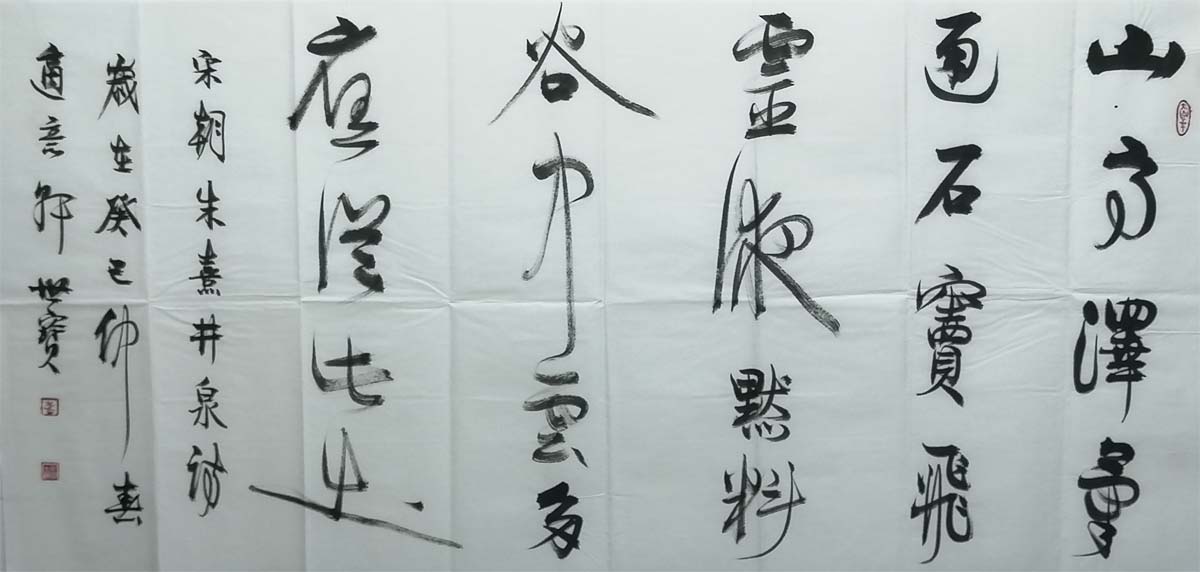 山高澤氣
通石竇飛
靈液默料
谷中雲多
應從此出
宋朝朱熹井泉詩
歲在癸巳仲春
適意軒世寶